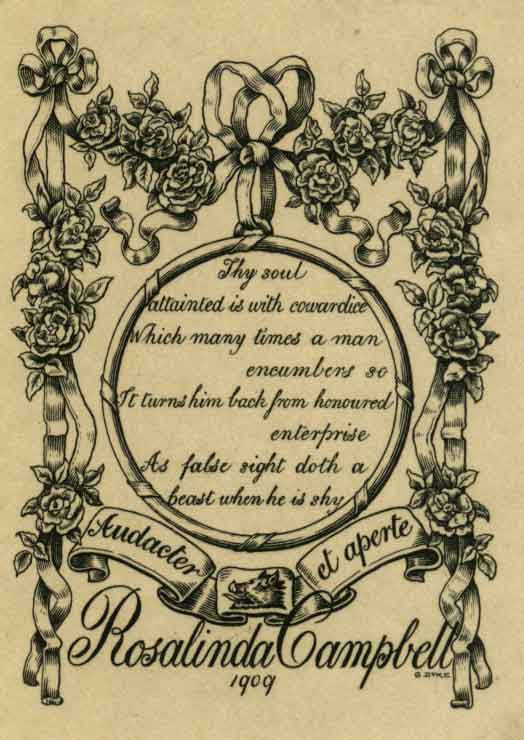 Thy soul
attainted is with cowardice
Which many times a man
encumbers so
It turns him back from honoured
enterprise
As false sight doth a
beast when he is shy
Audacter et aperte
Rosalinda Campbell
1909
G. DYKE.